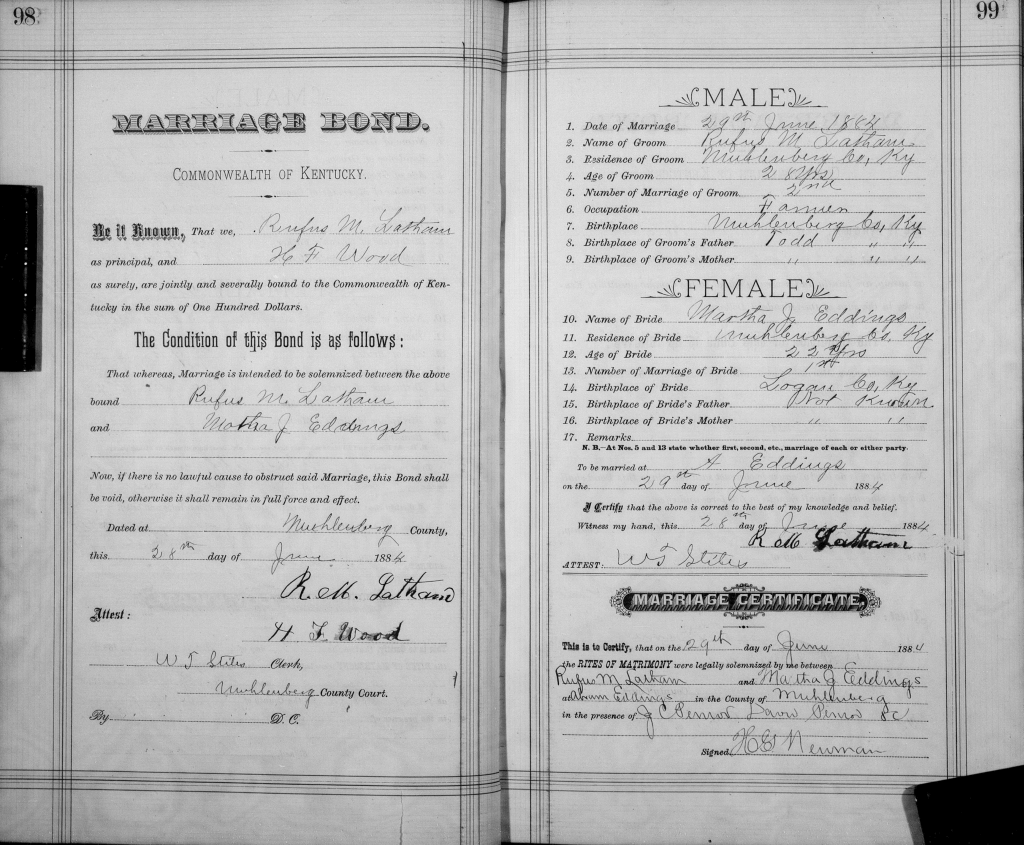 98
MARRIAGE BOND.
COMMONWEALTH OF KENTUCKY.
Be it Known, That we, Rufus M. Latham
as principal, and H F Wood
as surety, are jointly and severally bound to the Commonwealth of Ken-
tucky in the sum of One Hundred Dollars.
The Condition of this Bond is as follows:
That whereas, Marriage is intended to be solemnized between the above
bound Rufus M. Latham
and Martha J Eddings
Now, if there is no lawful cause to obstruct said Marriage, this Bond shall
be void, otherwise it shall remain in full force and effect.
Dated at Muhlenberg County,
this 28th day of June 1884
R. M. Latham
Attest:
H F Wood
W T Stiles Clerk,
Muhlenberg County Court.
By D. C.
99
MALE
1. Date of Marriage 29th June 1884
2. Name of Groom Rufus M Latham
3. Residence of Groom Muhlenberg Co, Ky
4. Age of Groom 28 Yrs
5. Number of Marriage of Groom 2nd
6. Occupation Farmer
7. Birthplace Muhlenberg Co, Ky
8. Birthplace of Groom's Father Todd " "
9. Birthplace of Groom's Mother " " "
FEMALE
10. Name of Bride Martha J Eddings
11. Residence of Bride Muhlenberg Co, Ky
12. Age of Bride 22 Yrs
13. Number of Marriage of Bride 1st
14. Birthplace of Bride Logan Co, Ky
15. Birthplace of Bride's Father Not Known
16. Birthplace of Bride's Mother " "
17. Remarks
N. B.—At Nos. 5 and 13 state whether first, second, etc., marriage of each or either party.
To be married at A Eddings
on the 29th day of June 1884
I Certify that the above is correct to the best of my knowledge and belief.
Witness my hand, this 28th day of June 1884
R M Latham
ATTEST: W T Stiles
MARRIAGE CERTIFICATE.
This is to Certify, that on the 29th day of June 1884
the RITES OF MATRIMONY were legally solemnized by me between
Rufus M Latham and Martha J Eddings
at Abram Eddings in the County of Muhlenberg
in the presence of J C Penrod Penrod &c
Signed, Newman